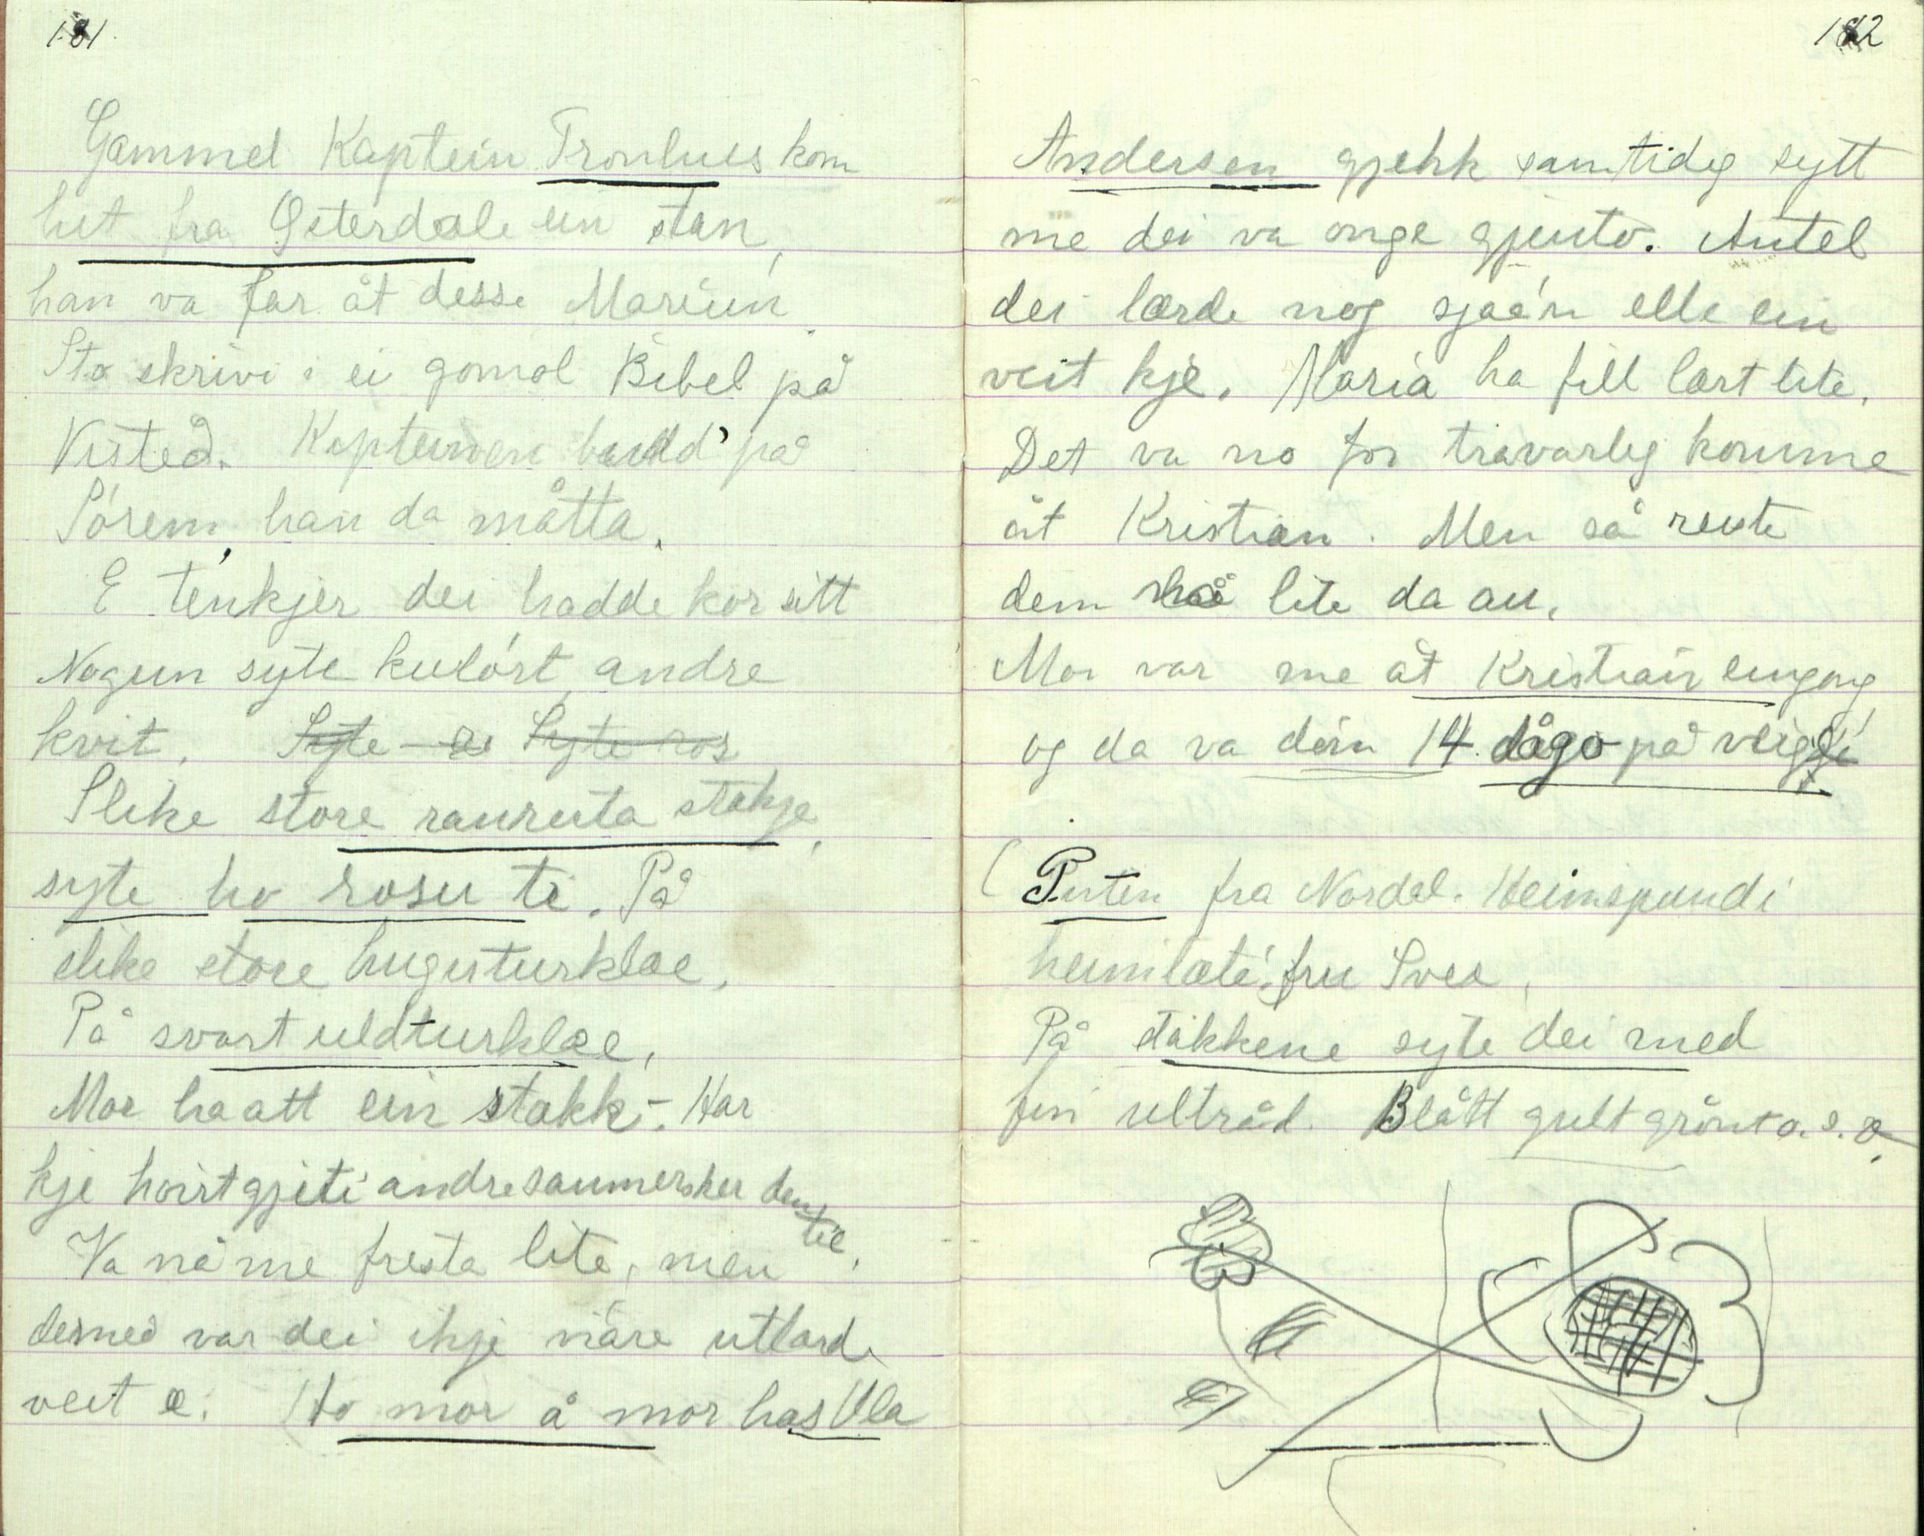 181.
Gammel Kaptein Tronhus kom
hit fra Østerdale ein stan,
han va far åt desse Mariun
Sto skrivi i ei gomol Bibel på
Visted. Kapteinen budd' på
Sórem, han da måtta.
E tenkjer dei hadde kor sitt
Nogun syte kulórt, andre
kvit. Syte Syte ros
Slike store raurusta stakje,
syte ho rosu ti. På
slike store hugusturklæe,
På svart uldturklæe,
Mor ha att ein stakk-. Har
kje hoirt gjeti andre saumersker dem
til.
Va nå me fresta lite, men
dermed var dei ikje nåre utlærde
veit e. Ho mor å mor has Ola
182
Andersen gjekk samtidig sytt
me dei va onge gjento. Antel
dei lærde nog sjaá'n elle ein
veit kje. Maria ha fill lært lite.
Det va no for travarleg komme
åt Kristian. Men så reste
dem lite da au.
Mor var me åt Kristian eingong
og da va dein 14 dågo på veiggi
(Puten fra Nordal. Heimspundi
heimlæti, fru Svea,
På stakkene syte dei med
fin ultråd. Blått gult grönt o. s. v.